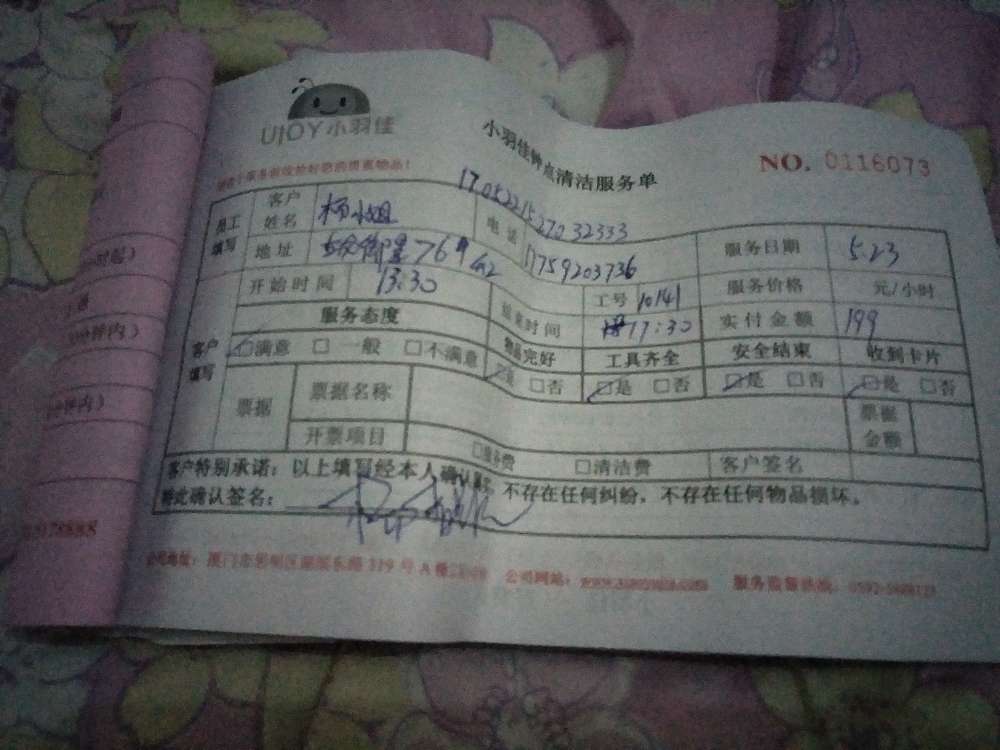 UJOY小羽佳
小羽佳钟点清洁服务单
NO. 0116073
1705221527032333
员工填写 客户姓名 杨小姐 电话 17759203736 服务日期 5.23
地址 769
开始时间 13:30 工号 10141 服务价格 元/小时
结束时间 17:30 实付金额 199
客户填写 服务态度 物品完好 工具齐全 安全结束 收到卡片
☑满意 □一般 □不满意 ☑是 □否 ☑是 □否 ☑是 □否 ☑是 □否
票据 票据名称 票据金额
开票项目 □服务费 □清洁费 客户签名
客户特别承诺：以上填写经本人确认属实，不存在任何纠纷，不存在任何物品损坏。
特此确认签名：
公司地址：厦门市思明区 319号A
公司网站： 服务监督热线：